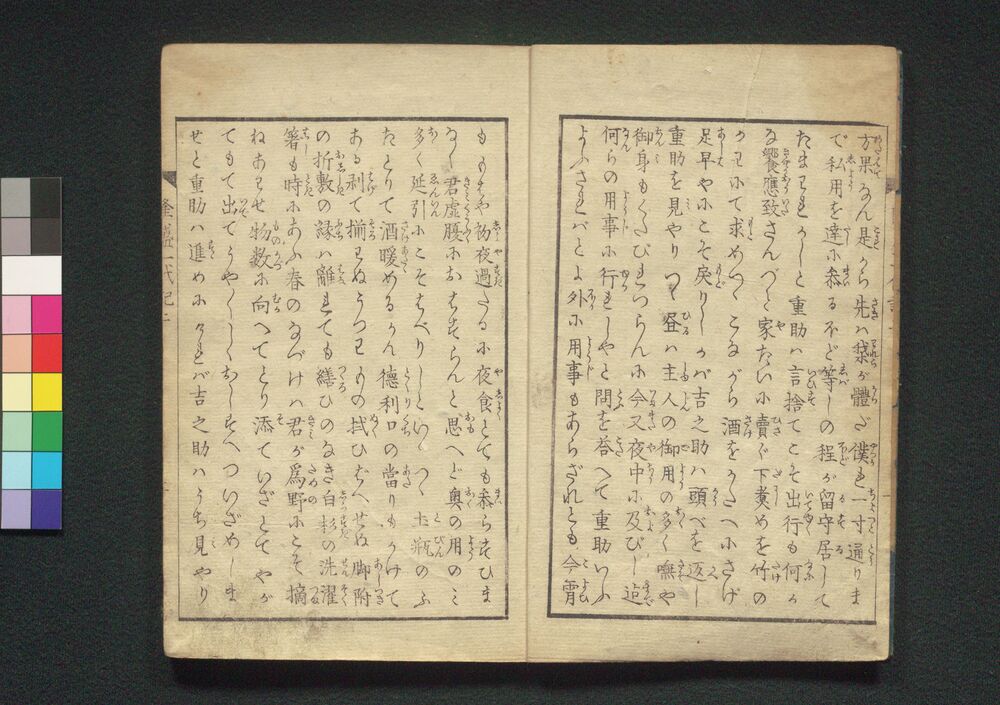 方果なん是から先ハ我が體だ僕も一寸通りま
で私用を達に参るほど等しの程が留守居して
たまわれかしと重助ハ言捨てこそ出行も何か
な饗應致さんづと家たいに賣ぐ下煮めを竹の
かわにて求めつゝこながら酒をかたへにさげ
足早やにこそ戻りしかバ吉之助ハ頭べを返し
重助を見やりつゝ昼ハ主人の御用の多く嘸や
御身もくたびれつらんに今又夜中に及びし迠
何らの用事に行れしやと問を荅へて重助いふ
よふされバとよ外に用事もあらざれども今霄
ももはや初夜過たるに夜食とても参らせひま
なく君虚腹におはすらんと思へど奥の用のミ
多く延引にこそはべりしといひつゝ土瓶のふ
たとりて酒暖めるかん德利口の當りもかけて
ある剥て揃わぬうつわもの拭ひはへせぬ脚附
の折敷の縁ハ離れても繕ひのなき白杉の洗濯
箸も時にあふ春のなづけハ君が為野にこそ摘
ねあわせ物数に向へてとり添ていざとてやが
てもて出てうやうやしくおしすへついざめしま
せと重助ハ進めにけれバ吉之助ハうち見やり